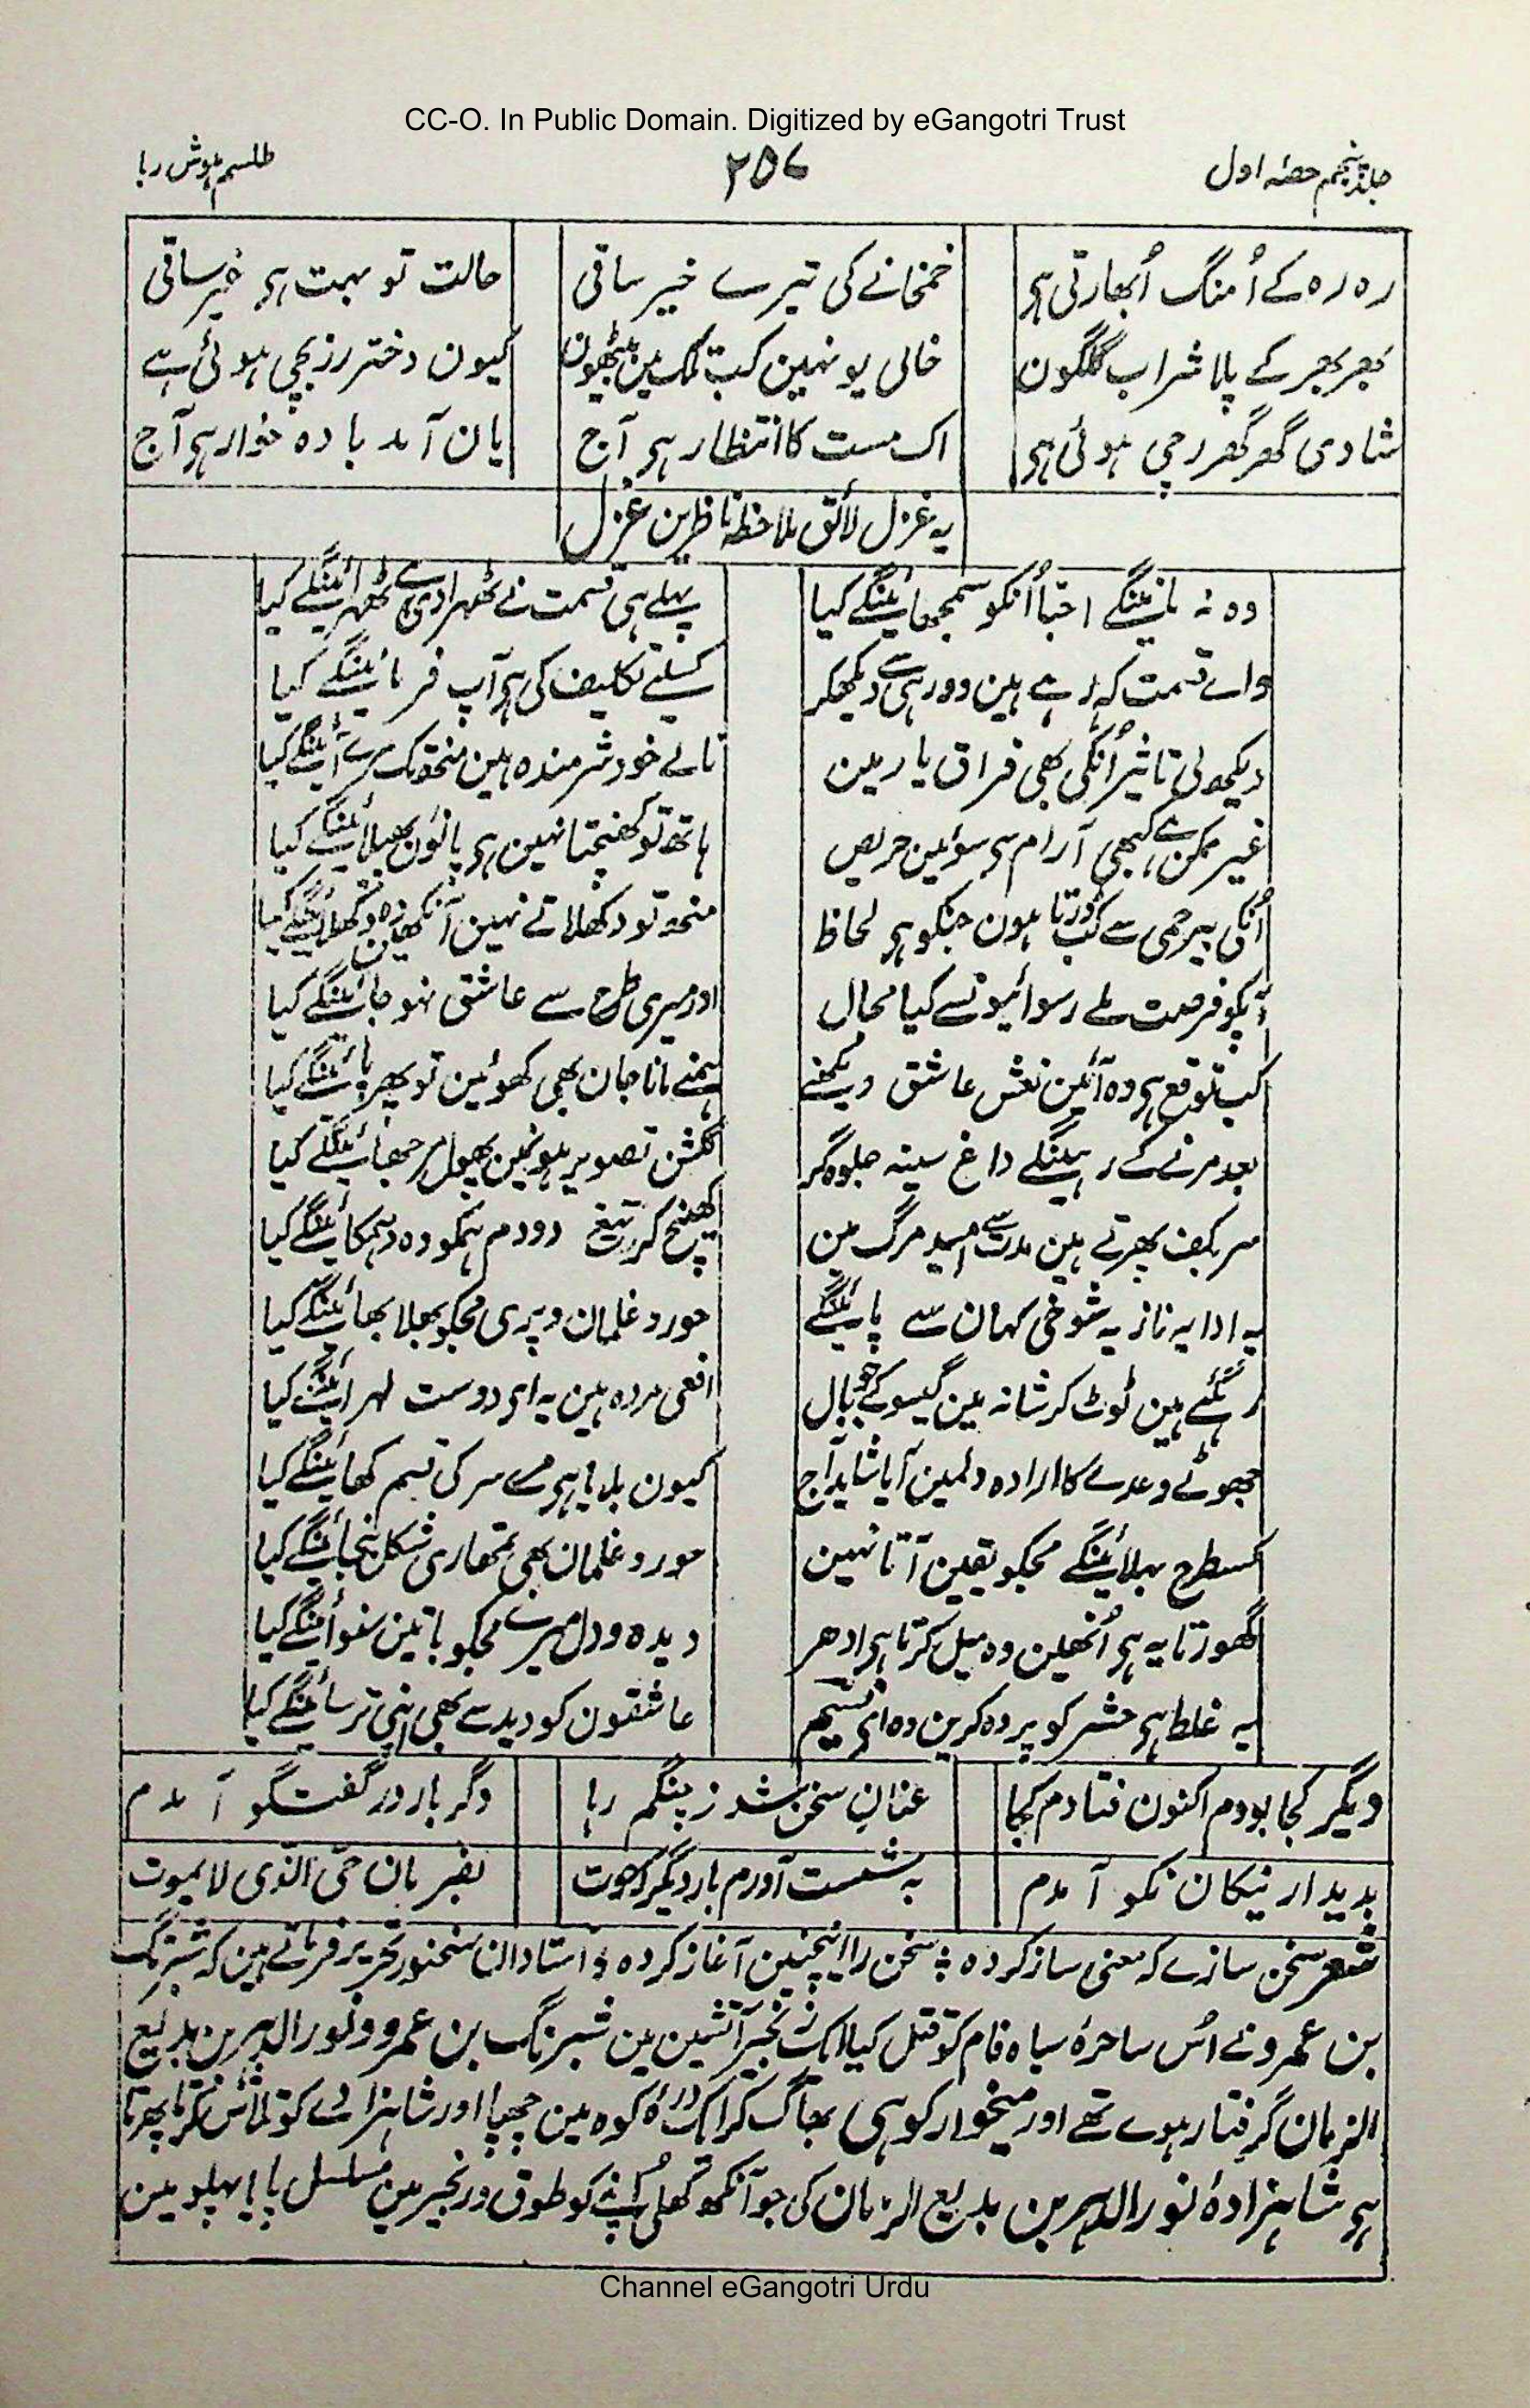 CC-O. In Public Domain. Digitized by eGangotri Trust
جلد پنجم حصۂ اول ۲۵۷ طلسم ہوش ربا
رہ رہ کے اُمنگ اُبھارتی ہی خمخانے کی تیرے خیر ساقی حالت تو بہت ہی غیر ساقی
بھر بھر کے پلا شراب گلگون خالی یونہین کب تلک مین بیٹھون کیون دختر رز بچی ہوئی ہے
شادی گھر گھر رچی ہوئی ہی اک مست کا انتظار ہی آج یان آمد بادہ خوار ہی آج
یہ غزل لائق ملاحظہ ناظرین غزل
وہ نہ مانینگے احبا اُنکو سمجھائینگے کیا پہلے ہی قسمت نے ٹھہرا دی ہے ٹھہرائینگے کیا
واے قسمت کہہ رہے ہین دور ہی سے دیکھکر کسلیے تکلیف کی ہی آپ فرمائینگے کیا
دیکھ لی تاثیر اُنکی بھی فراق یار مین نالے خود شرمندہ ہین منھ تک مرے آئینگے کیا
غیر ممکن ہے کبھی آرام سی سوئین حریص ہاتھ تو کھنچتا نہین ہی پانون پھیلائینگے کیا
اُنکی بیرحمی سے کب ڈرتا ہون جنکو ہی لحاظ منھ تو دکھلاتے نہین آنکھین وہ دکھلائینگے کیا
آپکو فرصت ملے رسوائیونسے کیا محال اور میری طرح سے عاشق نہو جائینگے کیا
کب توقع ہی وہ آئین نعش عاشق دیکھنے ہمنے مانا جان بھی کھوئین تو پھر پائینگے کیا
بعد مرنے کے رہینگے داغ سینہ جلوہ گر گلشن تصویر ہونمین پھول مرجھائینگے کیا
سر بکف پھرتے ہین مدت سے امید مرگ مین کھینچ کر تیغ دودم ہمکو وہ دہمکائینگے کیا
یہ ادا یہ ناز یہ شوخی کہان سے پائینگے حور و غلمان و پری مجکو بھلا بھائینگے کیا
رہگئے ہین ٹوٹ کر شانہ مین گیسو کے جو بال افعی مردہ ہین یہ ای دوست لہرائینگے کیا
جھوٹے وعدے کا ارادہ دلمین آیا شاید آج کیون بلایا ہی مرے سر کی قسم کھائینگے کیا
کسطرح بہلائینگے مجکو یقین آتا نہین حور و غلمان بھی تمھاری شکل بنجائینگے کیا
گھورتا یہ ہی اُنھین وہ میل کرتا ہی ادھر دیدہ و دل میرے مجکو باتین سنوائینگے کیا
یہ غلط ہی حشر کو پردہ کرین وہ ای نسیم عاشقون کو دید سے بھی اپنی ترسائینگے کیا
دیگر کجا بودم اکنون فتادم کجا عنان سخن شد ز چنگم رہا دگر بار در گفتگو آمدم
بدیدار نیکان نکو آمدم بہ شست آورم بار دیگر کہ حوت بفرمان حی الذی لایموت
شعر سخن سازے کہ معنی ساز کردہ ؞ سخن را اینچنین آغاز کردہ ؞ استادان سخنور تحریر فرماتے ہین کہ شبرنگ
بن عمرو نے اُس ساحرۂ سیاہ فام کو قتل کیا اک زنجیر آتشین مین شبرنگ بن عمرو و نورالدہر بن بدیع
الزمان گرفتار ہوے تھے اور میخوار کوہی بھاگ کر اک درۂ کوہ مین چھپا اور شاہزادے کو تلاش کرتا پھرتا
ہی شاہزادۂ نورالدہر بن بدیع الزمان کی جو آنکھ کھلی اپنے کو طوق و زنجیر مین مسلسل پایا پہلو مین
Channel eGangotri Urdu